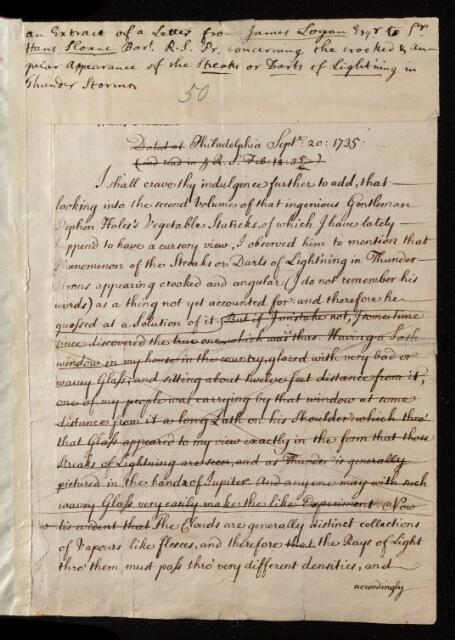 an Extract of a Letter from James Logan Esqr to Sr.
Hans Sloane Bart. R.S. Pr. concerning the crooked & an-
gular Appearance of the Streaks or Darts of Lightning in
Thunder Storms
50
Dated at Philadelphia Septr. 20: 1735.
(and read in R.S. Feb: 12: 35/6)
I shall crave thy indulgence further to add, that
looking into the second Volumes of that ingenious Gentleman
Stephen Hales's Vegetable Staticks, of which I have lately
happend to have a cursory view, I observed him to mention that
Phenomenon of the Streaks or Darts of Lightning in Thunder
Storms appearing crooked and angular (I do not remember his
words) as a thing not yet accounted for and therefore he
guessed at a Solution of it. But if I mistake not, I sometime
since discovered the true one, which was thus. Having a Sash
window in my house in the country, glazed with very bad or
wavey Glass, and sitting about twelve feet distance from it,
one of my people was carrying by that window at some
distance from it a long Lath on his Shoulder which thro'
that Glass appeared to my view exactly in the form that those
Streaks of Lightning are seen, and as Thunder is generally
pictured in the hand of Jupiter. And any one may with such
wavey Glass very easily make the like Experiment. Now
tis evident that The Clouds are generally distinct collections
of Vapours like fleeces, and therefore that the Rays of Light
thro' them must pass thro' very different densities, and
accordingly